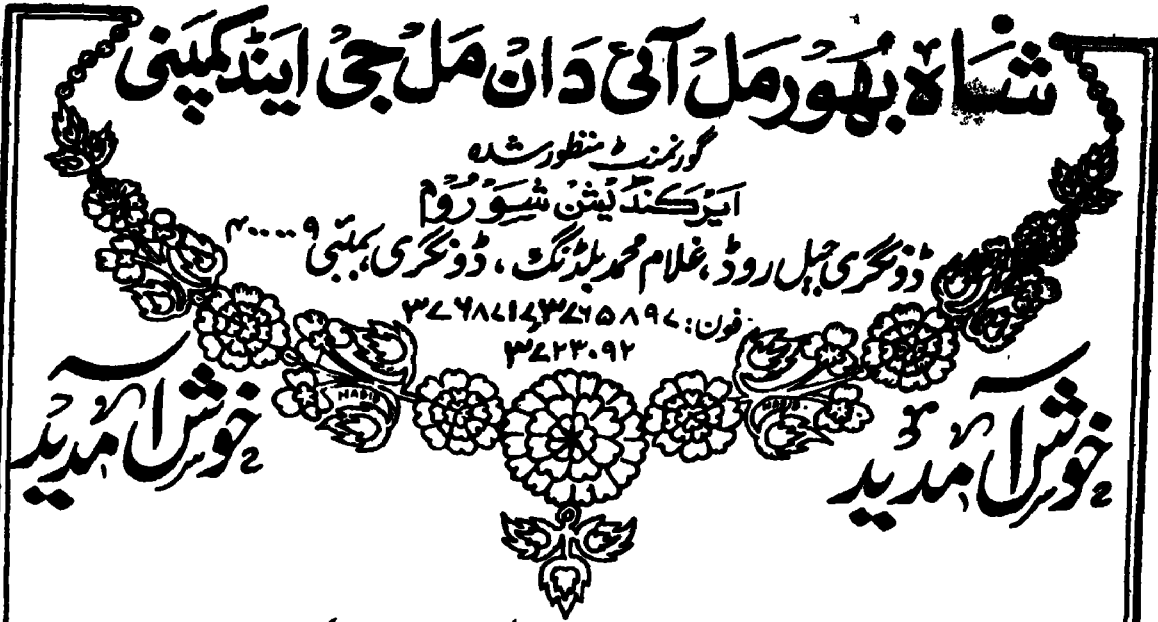 شاہ بھورمل آئی دان مل جی اینڈ کمپنی
گورنمنٹ منظور شدہ
ایر کنڈیشن شو روم
ڈونگری جیل روڈ، غلام محمد بلڈنگ، ڈونگری بمبئی ۴۰۰۰۰۹
فون: ۳۷۶۵۸۹۷، ۳۷۶۸۷۱۷
۳۷۲۳۰۹۲
خوش آمدید
خوش آمدید
HABIB
HABIB